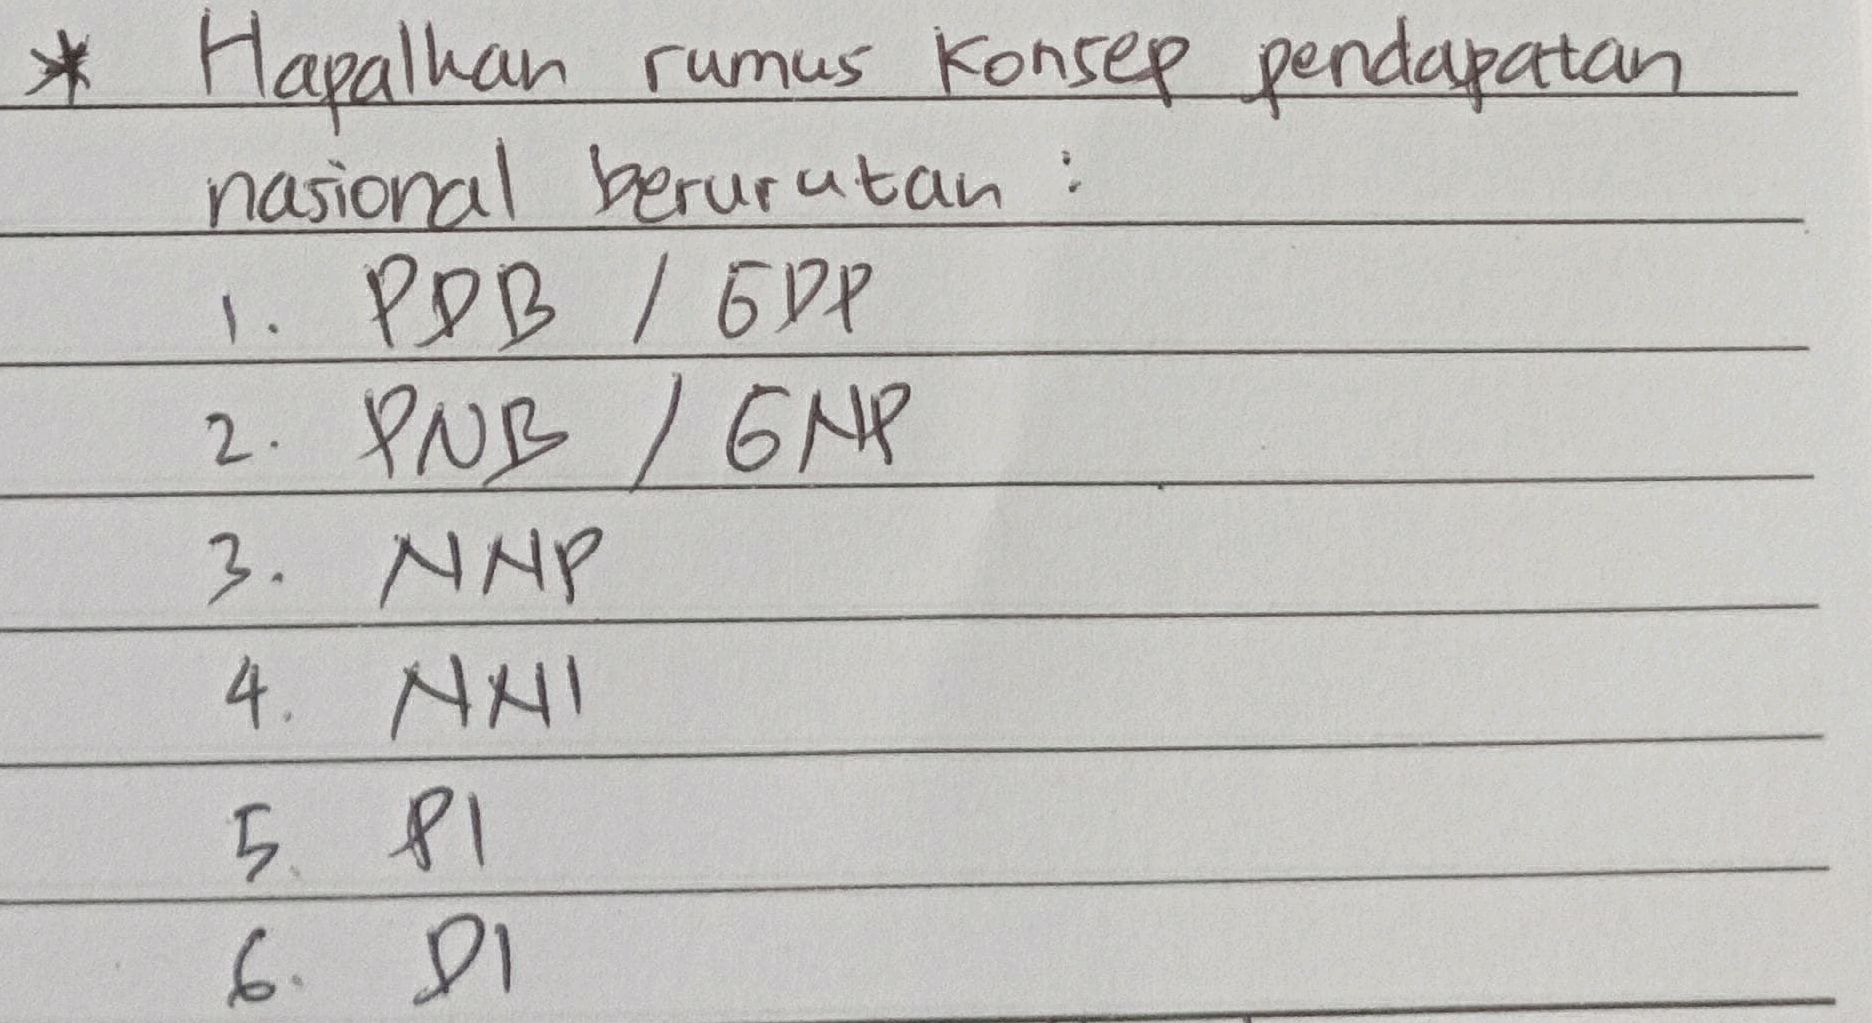 * Hapalkan rumus konsep pendapatan
nasional berurutan :
1. PDB / GDP
2. PNB / GNP
3. NNP
4. NNI
5. PI
6. DI